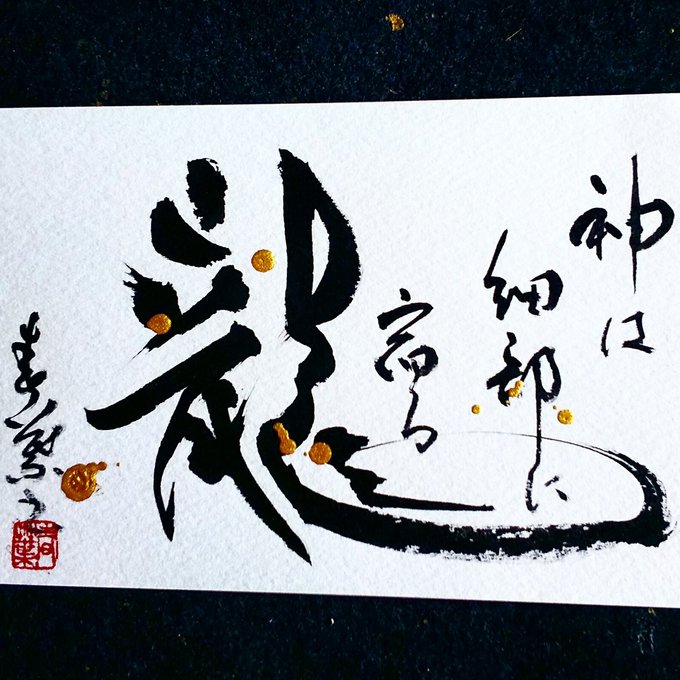 神は
細部に
宿る
龍